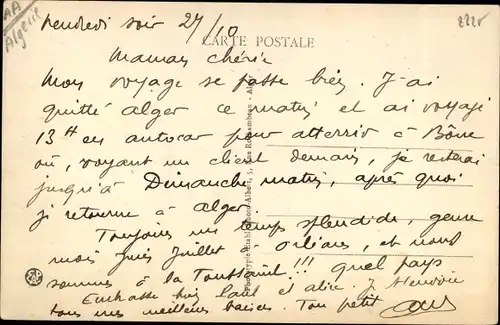 AA
Algérie
Vendredi soir 27/10
CARTE POSTALE
Maman chérie
Mon voyage se passe bien. J'ai
quitté alger ce matin et ai voyagé
13H en autocar pour atterrir à Bône
où, voyant un client demain, je resterai
jusqu'à Dimanche matin, après quoi
je retourne à alger.
Toujours un temps splendide, genre
mois juin juillet à Orléans, et nous
sommes à la Toussaint!!! Quel pays
Embrasse bien Paul et alice. Je t'envoie
tous mes meilleurs baisers. Ton petit